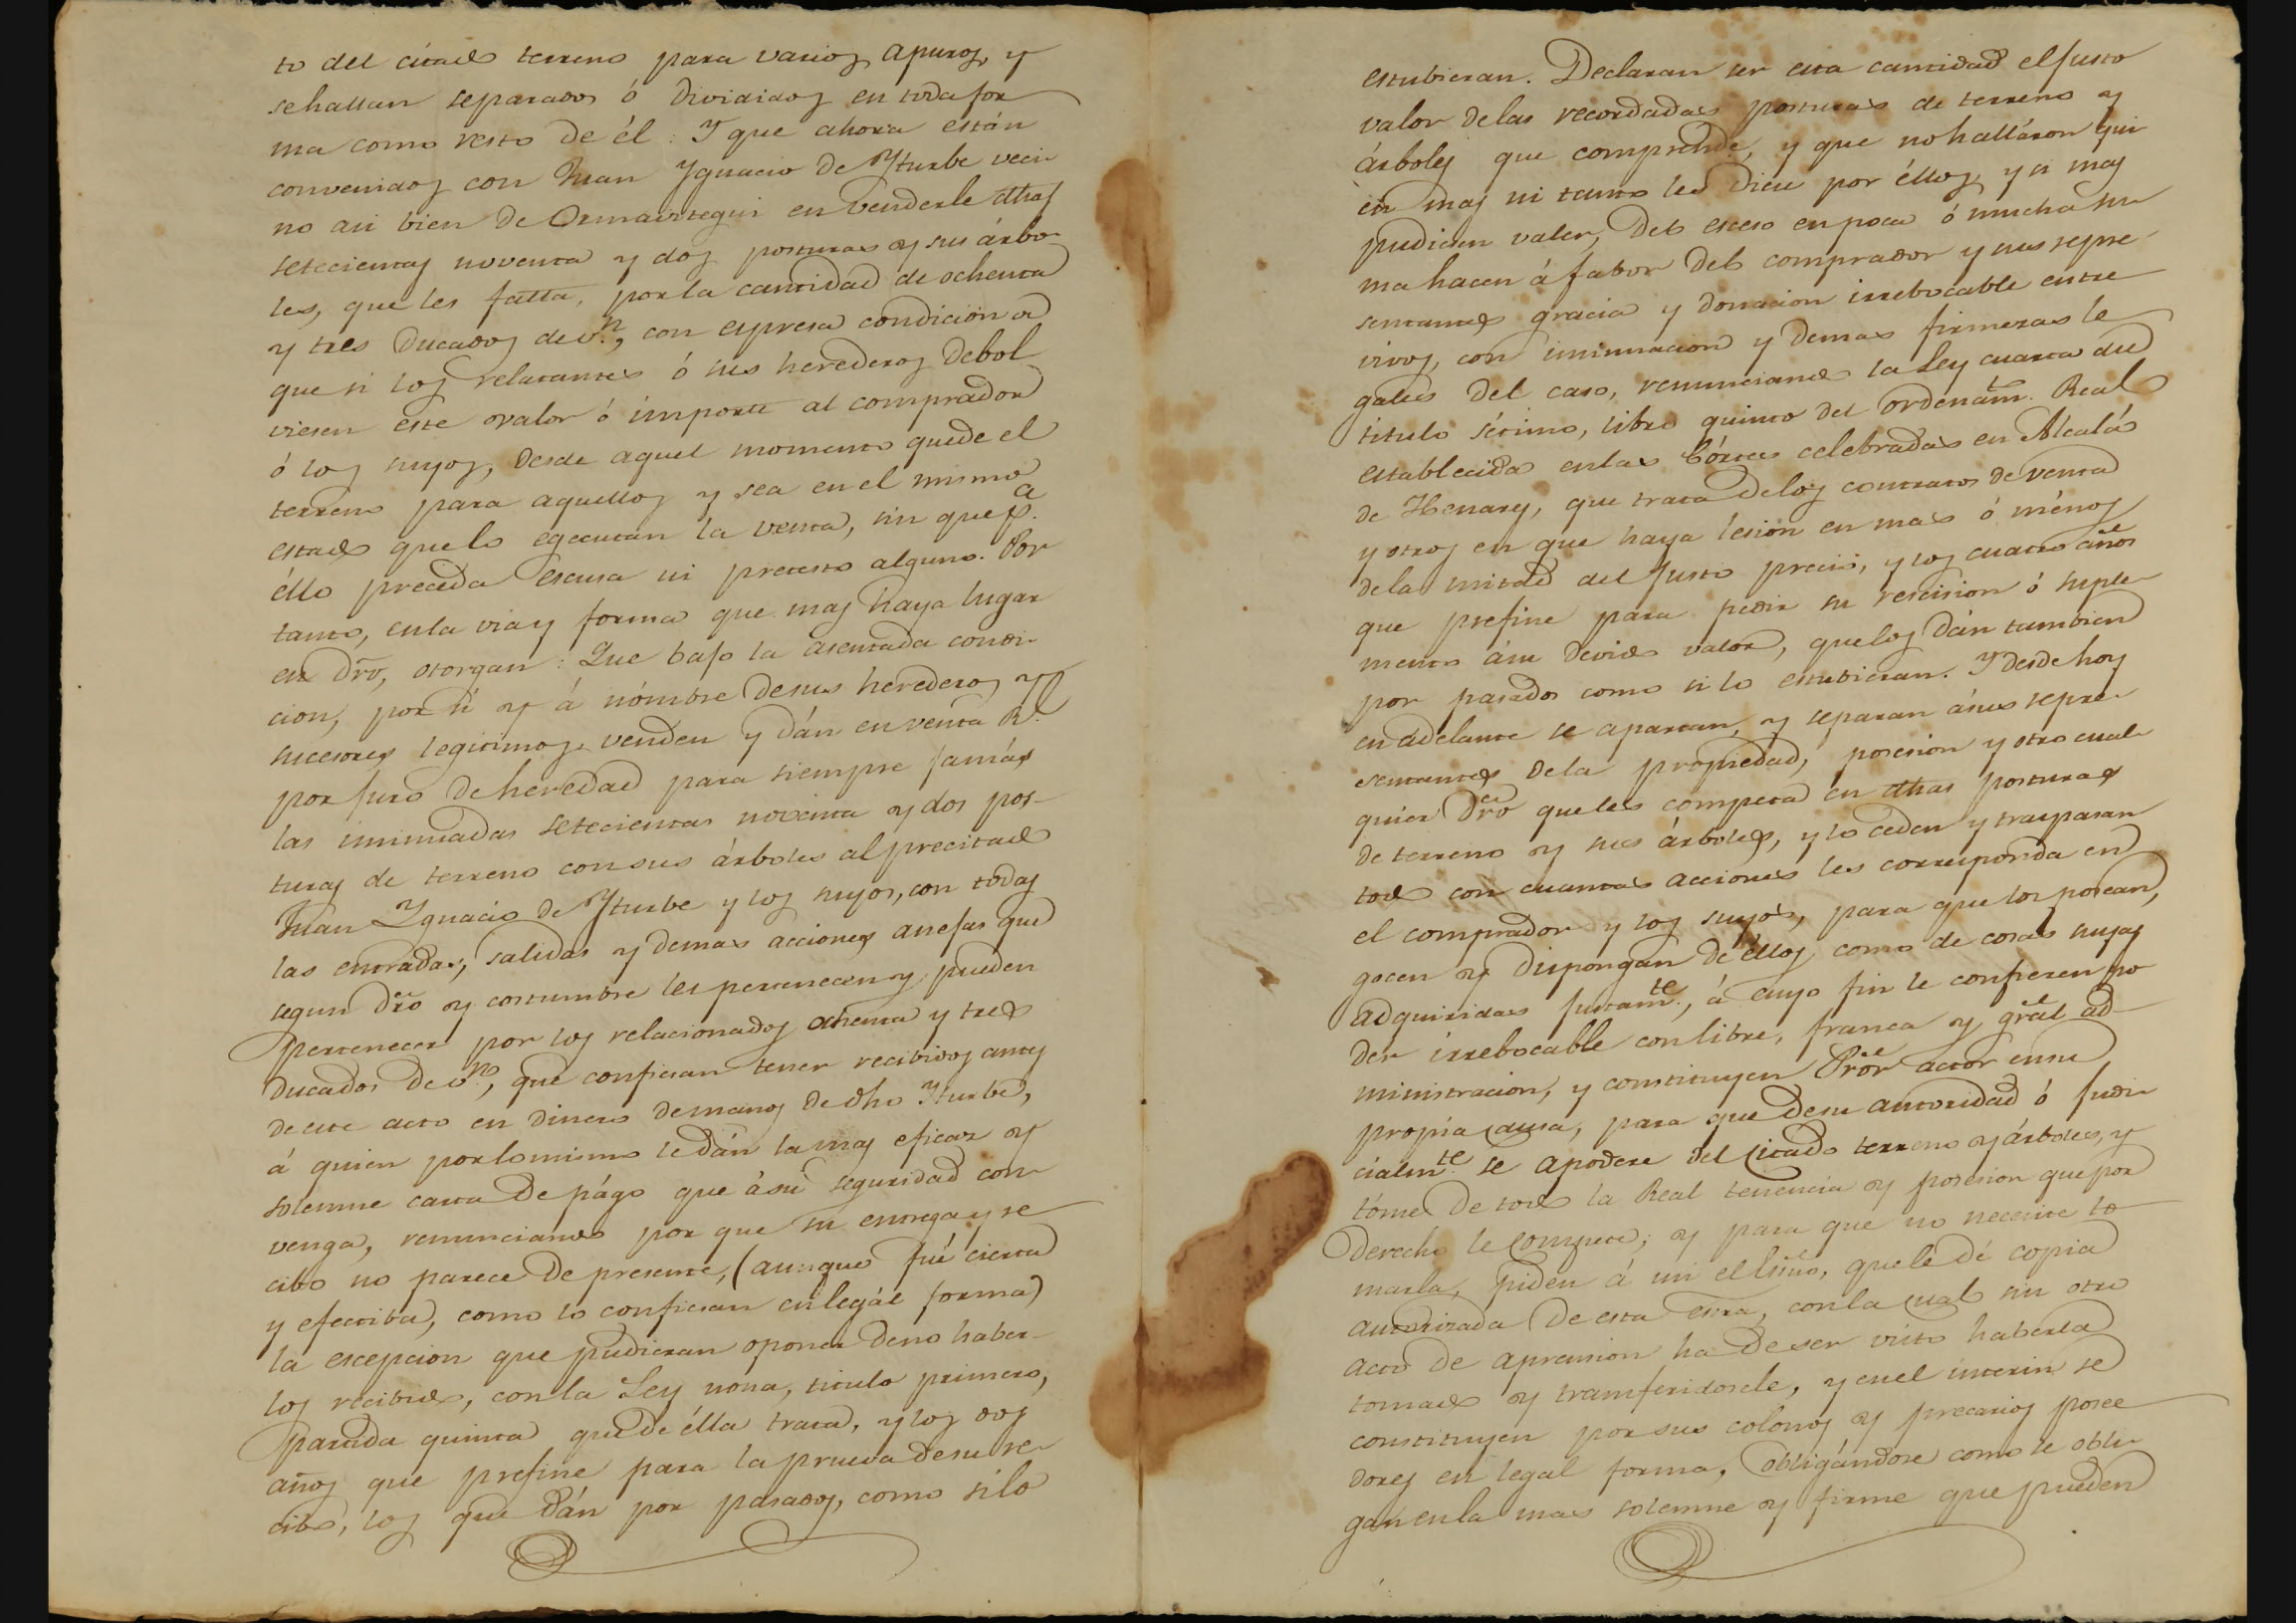 to del citado terreno para varios apuros, y
se hallan separados ó divididos en toda for
ma como resto de él: Y que ahora están
convenidos con Juan Ygnacio de Yturbe veci-
no asi bien de Ormaiztegui en venderle dhas
setecientas noventa y dos posturas y sus árbo-
les, que les falta, por la cantidad de ochenta
y tres ducados de v.n, con espresa condicion de
que si los relatantes ó sus herederos debol
viesen este valor ó importe al comprador
ó los suyos, desde aquel momento quede el
terreno para aquellos y sea en el mismo
estado que lo egecutan la venta, sin que p.a
éllo preceda escusa ni pretesto alguno. Por
tanto, en la via y forma que mas haya lugar
en dro, otorgan: Que bajo la asentada condi-
cion, por sí y á nómbre de sus herederos y
sucesores legitimos venden y dán en venta R.l
por juro de heredad para siempre jamás
las insinuadas setecientas noventa y dos pos-
turas de terreno con sus árboles al precitado
Juan Ygnacio de Yturbe y los suyos, con todas
las entradas, salidas y demas acciones anejas que
segun dro y costumbre les pertenecen y pueden
pertenecer por los relacionados ochenta y tres
ducados de v.n, que confiesan tener recibidos antes
de este acto en dinero de manos de dho Yturbe,
á quien por lo mismo le dán la mas eficaz y
solemne carta de págo que á su seguridad con-
venga, renunciando por que su entrega y re
cibo no parece de presente, (aunque fué cierta
y efectiba, como lo confiesan en legál forma)
la escepcion que pudieran oponer de no haber-
los recibido, con la Ley nona, titulo primero,
partida quinta que de élla trata, y los dos
años que prefine para la prueva de su re-
cibo, los que dán por pasados, como si lo
estubieran. Declaran ser esta cantidad el justo
valor de las recordadas posturas de terreno y
árboles que comprende, y que no halláron qui
én mas ni tanto les diese por éllos, y si mas
pudiesen valer, del esceso en poca ó mucha su-
ma hacen á fabor del comprador y sus repre-
sentantes gracia y donacion irrebocable entre
vivos, con insinuacion y demas firmezas le
gales del caso, renunciando la Ley cuarta del
titulo sétimo, libro quinto del ordenam.to Real
establecida en las Córtes celebradas en Alcalá
de Henares, que trata de los contratos de venta
y otros en que haya lesion en mas ó ménos
de la mitad del justo precio, y los cuatro años
que prefine para pedir su rescision ó suple-
mento á su devido valor, que los dán tambien
por pasados como si lo estubieran. Y desde hoy
en adelante se apartan, y separan á sus repre-
sentantes de la propiedad, posesion y otro cual-
quier dro que les competa en dhas posturas
de terreno y sus árboles, y lo ceden y traspasan
todo con cuantas acciones les corresponda en
el comprador y los suyos, para que los posean,
gocen y dispongan de éllos, como de cosas suyas
adquiridas justam.te, á cuyo fin le confieren po
der irrebocable con libre, franca y grál ad-
ministracion, y constituyen Pror actor en su
propia causa, para que de su autoridad ó judi-
cialm.te se apodere del citado terreno y árboles, y
tóme de todo la Real tenencia y posesion que por
derecho le compete; y para que no necesite to
marla, piden á mi el Esno, que le dé copia
autorizada de esta esra, con la cual sin otro
acto de aprension ha de ser visto haberla
tomado y transferidosele, y en el interin se
constituyen por sus colonos y precarios posee
dores en legal forma, obligándose como se obli-
gan en la mas solemne y firme que pueden